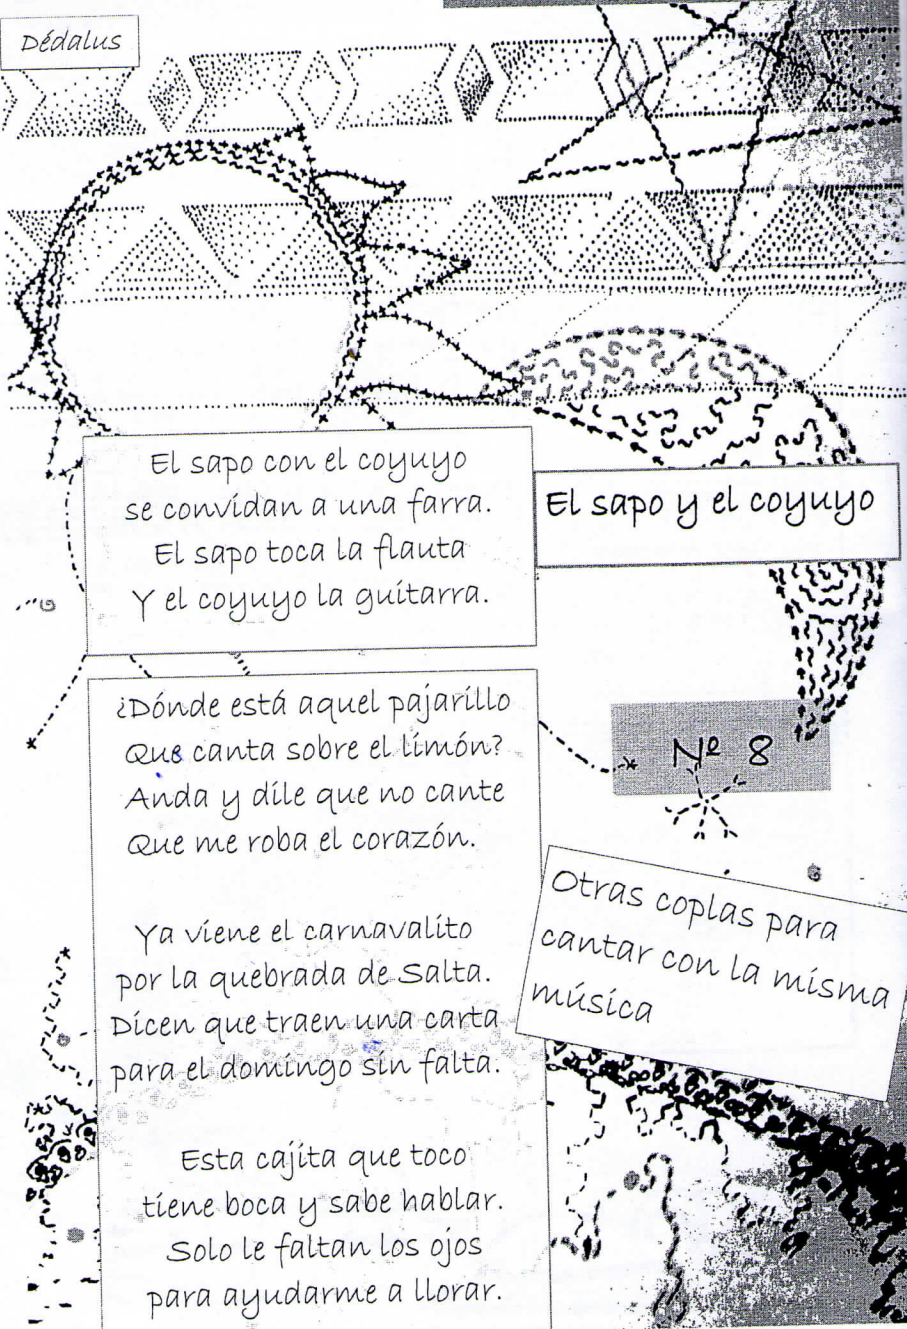 Dédalus
El sapo con el coyuyo
se convidan a una farra.
El sapo toca la flauta
Y el coyuyo la guitarra.
El sapo y el coyuyo
¿Dónde está aquel pajarillo
Que canta sobre el limón?
Anda y dile que no cante
Que me roba el corazón.
Ya viene el carnavalito
por la quebrada de Salta.
Dicen que traen una carta
para el domingo sin falta.
Esta cajita que toco
tiene boca y sabe hablar.
Solo le faltan los ojos
para ayudarme a llorar.
Nº 8
Otras coplas para
cantar con la misma
música